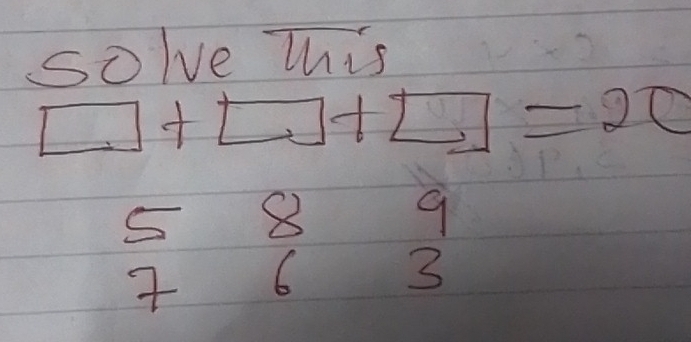 solve This
□ + □ + □ = 20
5 8 9
7 6 3